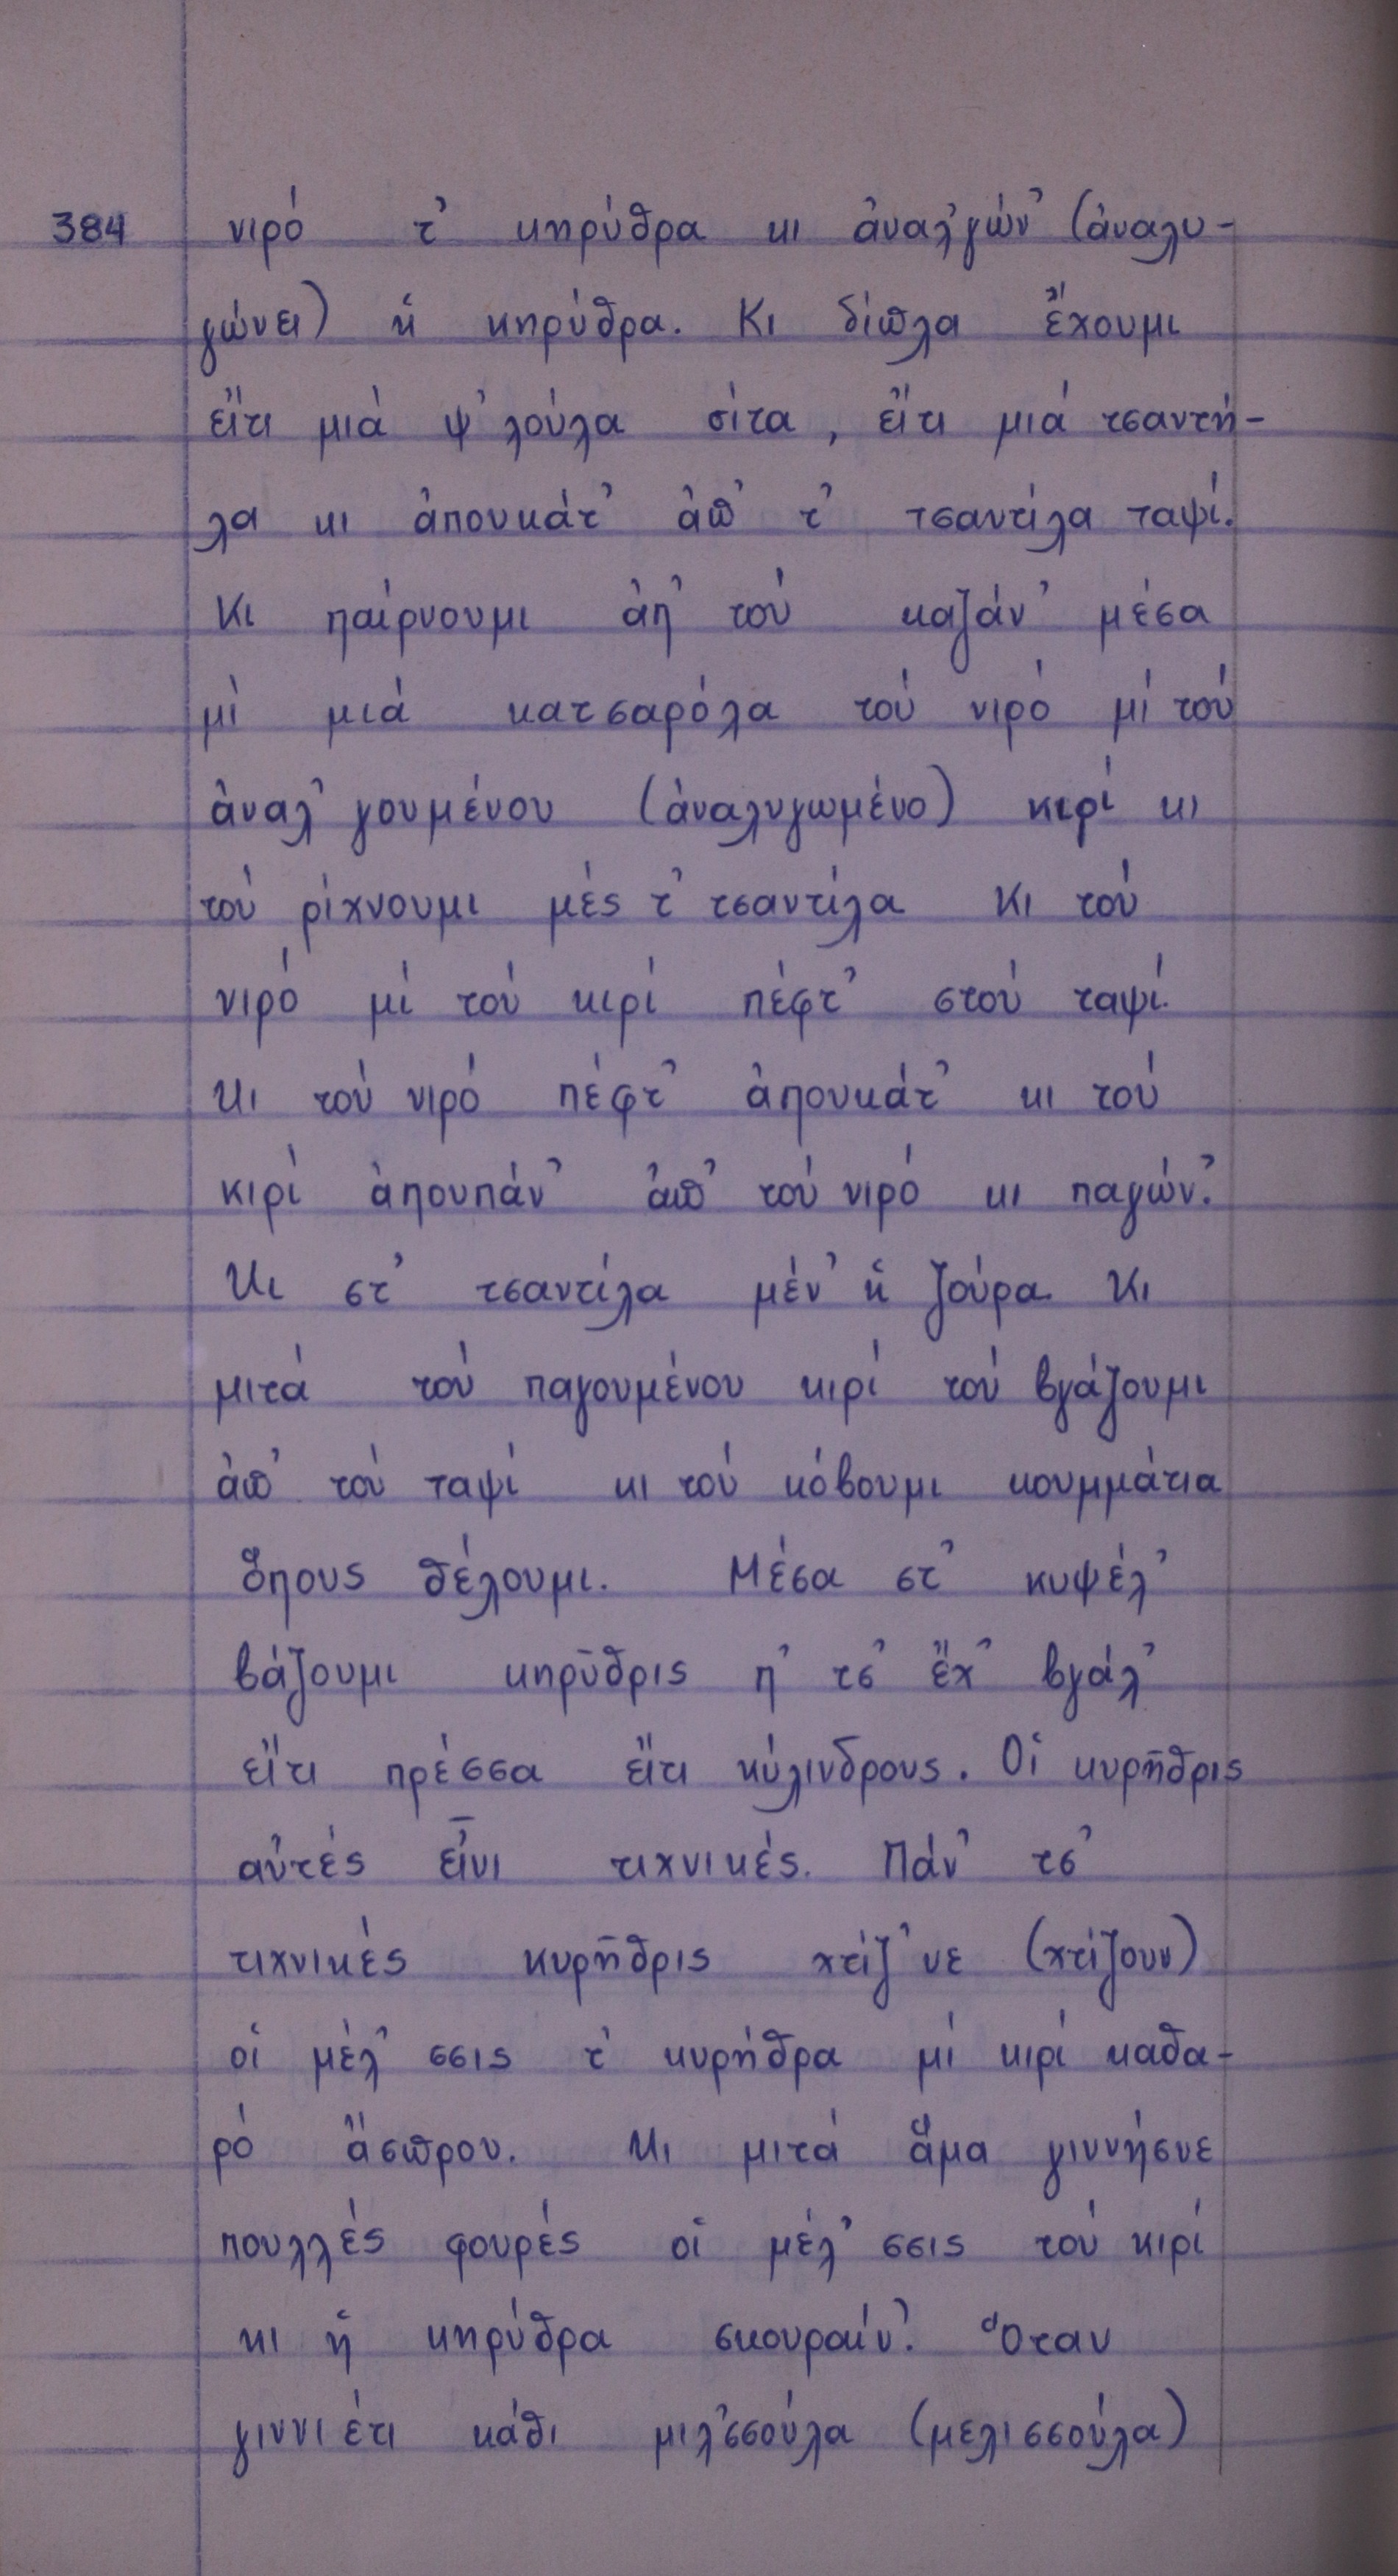 384 νιρό τ' κηρύθρα κι ἀναλ'γών' (ἀναλυ-
γώνει) ἡ κηρύθρα. Κι δίπλα ἔχουμι
εἴτι μιά ψ'λούλα σίτα, εἴτι μιά τσαντή-
λα κι ἀπουκάτ' ἀπ' τ' τσαντίλα ταψί.
Κι παίρνουμι ἀπ' τού καζάν' μέσα
μί μιά κατσαρόλα τού νιρό μί τού
ἀναλ'γουμένου (ἀναλυγωμένο) κιρί κι
τού ρίχνουμι μές τ' τσαντίλα κι τού
νιρό μί τού κιρί πέφτ' στού ταψί.
Κι τού νιρό πέφτ' ἀπουκάτ' κι τού
κιρί ἀπουπάν' ἀπ' τού νιρό κι παγών'.
Κι στ' τσαντίλα μέν' ἡ ζούρα. Κι
μιτά τού παγουμένου κιρί τού βγάζουμι
ἀπ' τού ταψί κι τού κόβουμι κουμμάτια
ὅπους θέλουμι. Μέσα στ' κυψέλ'
βάζουμι κηρῦθρις π' τσ' ἔχ' βγάλ'
εἴτι πρέσσα εἴτι κύλινδρους. Οἱ κυρῆθρις
αὐτές εἶνι τιχνικές. Πάν' τσ'
τιχνικές κυρῆθρις χτίζ'νε (χτίζουν)
οἱ μέλ'σσις τ' κυρήθρα μί κιρί καθα-
ρό ἄσπρου. Κι μιτά ἅμα γιννήσνε
πουλλές φουρές οἱ μέλ'σσις τού κιρί
κι ἡ κηρύθρα σκουραίν'. Ὅταν
γιννιέτι κάθι μιλ'σσούλα (μελισσούλα)